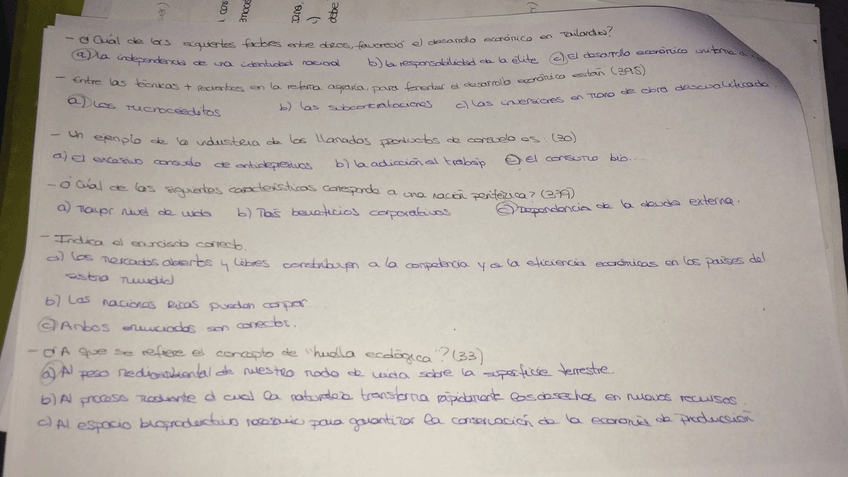 - ¿Cuál de los siguientes factores entre otros, favoreció el desarrollo económico en Tailandia?
a) La independencia de una identidad nacional b) la responsabilidad de la élite c) El desarrollo económico
- Entre las técnicas + recientes en la reforma agraria, para fomentar el desarrollo económico están (395)
a) Los microcréditos b) las subcontrataciones c) las inversiones en mano de obra descualificada
- Un ejemplo de la industria de los llamados productos de consuelo es. (30)
a) el excesivo consumo de antidepresivos b) la adicción al trabajo c) el consumo bio...
- ¿Cuál de las siguientes características corresponde a una nación periférica? (379)
a) Mayor nivel de vida b) Más beneficios corporativos c) Dependencia de la deuda externa.
- Indica el enunciado correcto.
a) Los mercados abiertos y libres contribuyen a la competencia y a la eficiencia económicas en los países del
mundial
b) Las naciones ricas pueden
c) Ambos enunciados son correctos.
- ¿A que se refiere el concepto de "huella ecológica"? (33)
a) Al peso medioambiental de nuestro modo de vida sobre la superficie terrestre
b) Al proceso mediante el cual la naturaleza transforma rápidamente los desechos en nuevos recursos.
c) Al espacio bioproductivo necesario para garantizar la conservación de la economía de producción